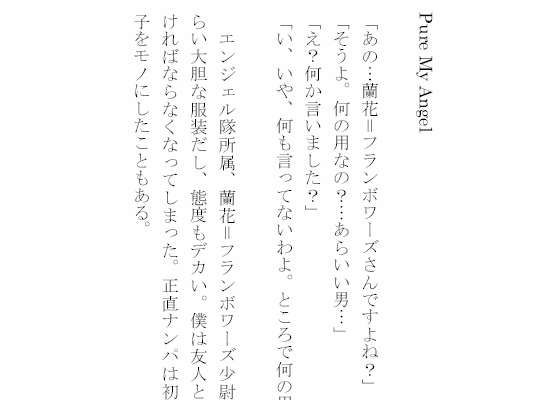 Pure My Angel
「あの…蘭花＝フランボワーズさんですよね？」
「そうよ。何の用なの？…あらいい男…」
「え？何か言いました？」
「い、いや、何も言ってないわよ。ところで何の用
エンジェル隊所属、蘭花＝フランボワーズ少尉
らい大胆な服装だし、態度もデカい。僕は友人と
ければならなくなってしまった。正直ナンパは初
子をモノにしたこともある。